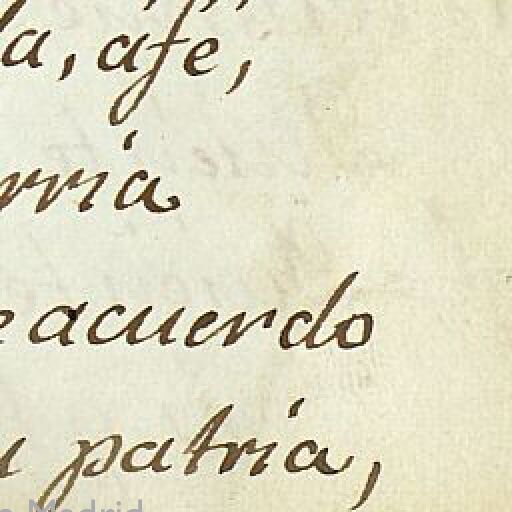 la, áfe,
rria
e acuerdo
u patria,
Madrid